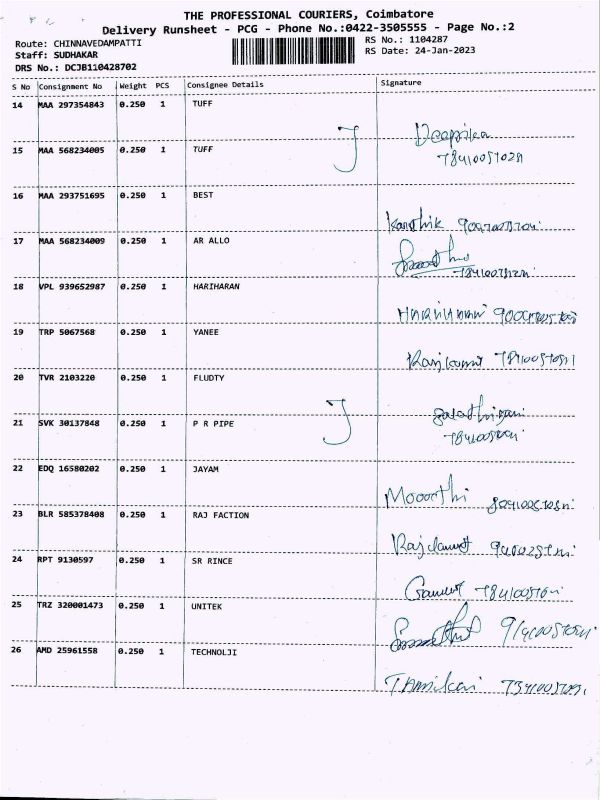 THE PROFESSIONAL COURIERS, Coimbatore
Delivery Runsheet - PCG - Phone No.:0422-3505555 - Page No.:2
Route: CHINNAVEDAMPATTI
RS No.: 1104287
Staff: SUDHAKAR
RS Date: 24-Jan-2023
DRS No.: DCJB110428702
S No Consignment No Weight PCS Consignee Details Signature
14 MAA 297354843 0.250 1 TUFF
J Deepika
15 MAA 568234005 0.250 1 TUFF
16 MAA 293751695 0.250 1 BEST
Karthik
17 MAA 568234009 0.250 1 AR ALLO
18 VPL 939652987 0.250 1 HARIHARAN
HARIHARAN
19 TRP 5067568 0.250 1 YANEE
Rajkumar
20 TVR 2103220 0.250 1 FLUDTY
J
21 SVK 30137848 0.250 1 P R PIPE
22 EDQ 16580202 0.250 1 JAYAM
Mooorthi
23 BLR 585378408 0.250 1 RAJ FACTION
24 RPT 9130597 0.250 1 SR RINCE
25 TRZ 320001473 0.250 1 UNITEK
26 AMD 25961558 0.250 1 TECHNOLJI